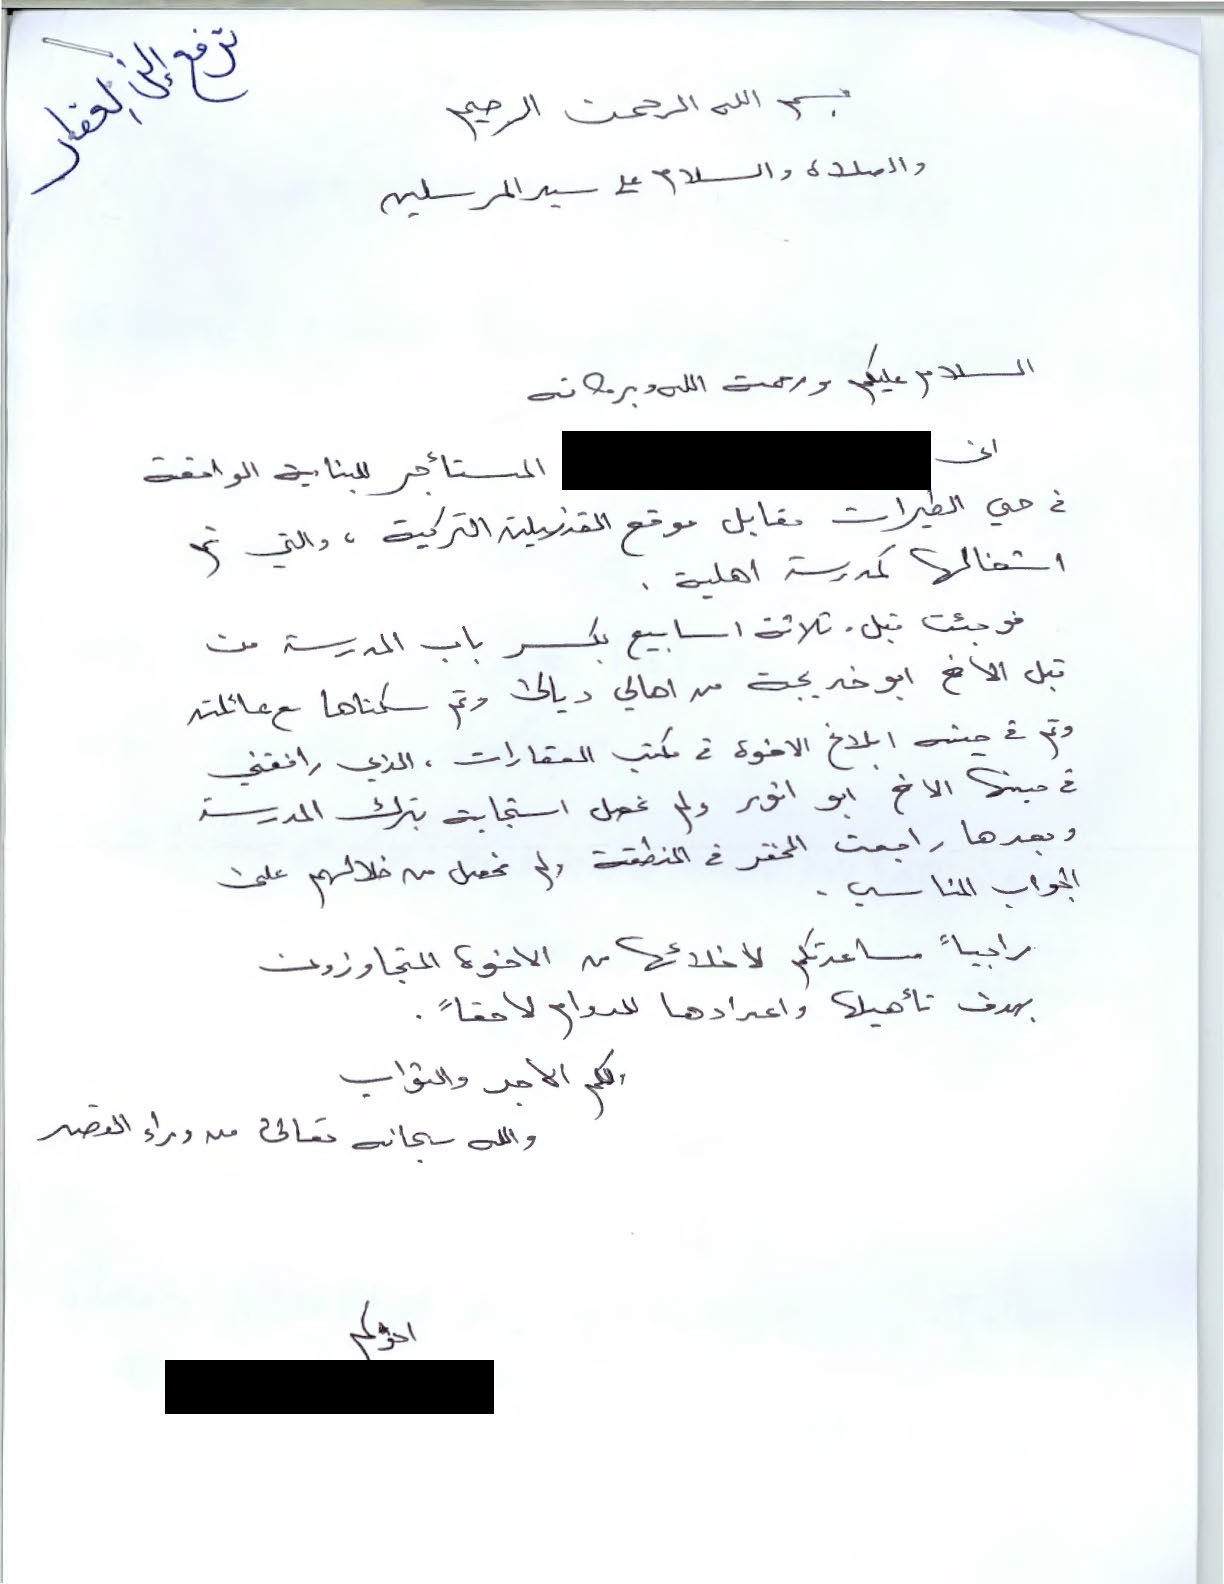 ترفع إلى العقار
بسم الله الرحمن الرحيم
والصلاة والسلام على سيد المرسلين
السلام عليكم ورحمة الله وبركاته
اني المستأجر للبناية الواقعة
في حي الطيرات مقابل موقع القنصلية التركية ، والتي تم
اشغالها كمدرسة اهلية .
فوجئت قبل ثلاثة اسابيع بكسر باب المدرسة من
قبل الاخ ابو خديجة من اهالي ديالى وتم سكناها مع عائلته
وتم في حينه ابلاغ الاخوة في مكتب العقارات ، الذي رافقني
في حينها الاخ ابو انور ولم نحصل استجابة بترك المدرسة
وبعدها راجعت المخفر في المنطقة ولم نحصل من خلالهم على
الجواب المناسب .
راجياً مساعدتكم لاخلائها من الاخوة المتجاوزون
بهدف تأهيلها واعدادها للدوام لاحقاً .
ولكم الأجر والثواب
والله سبحانه تعالى من وراء القصد
اخوكم